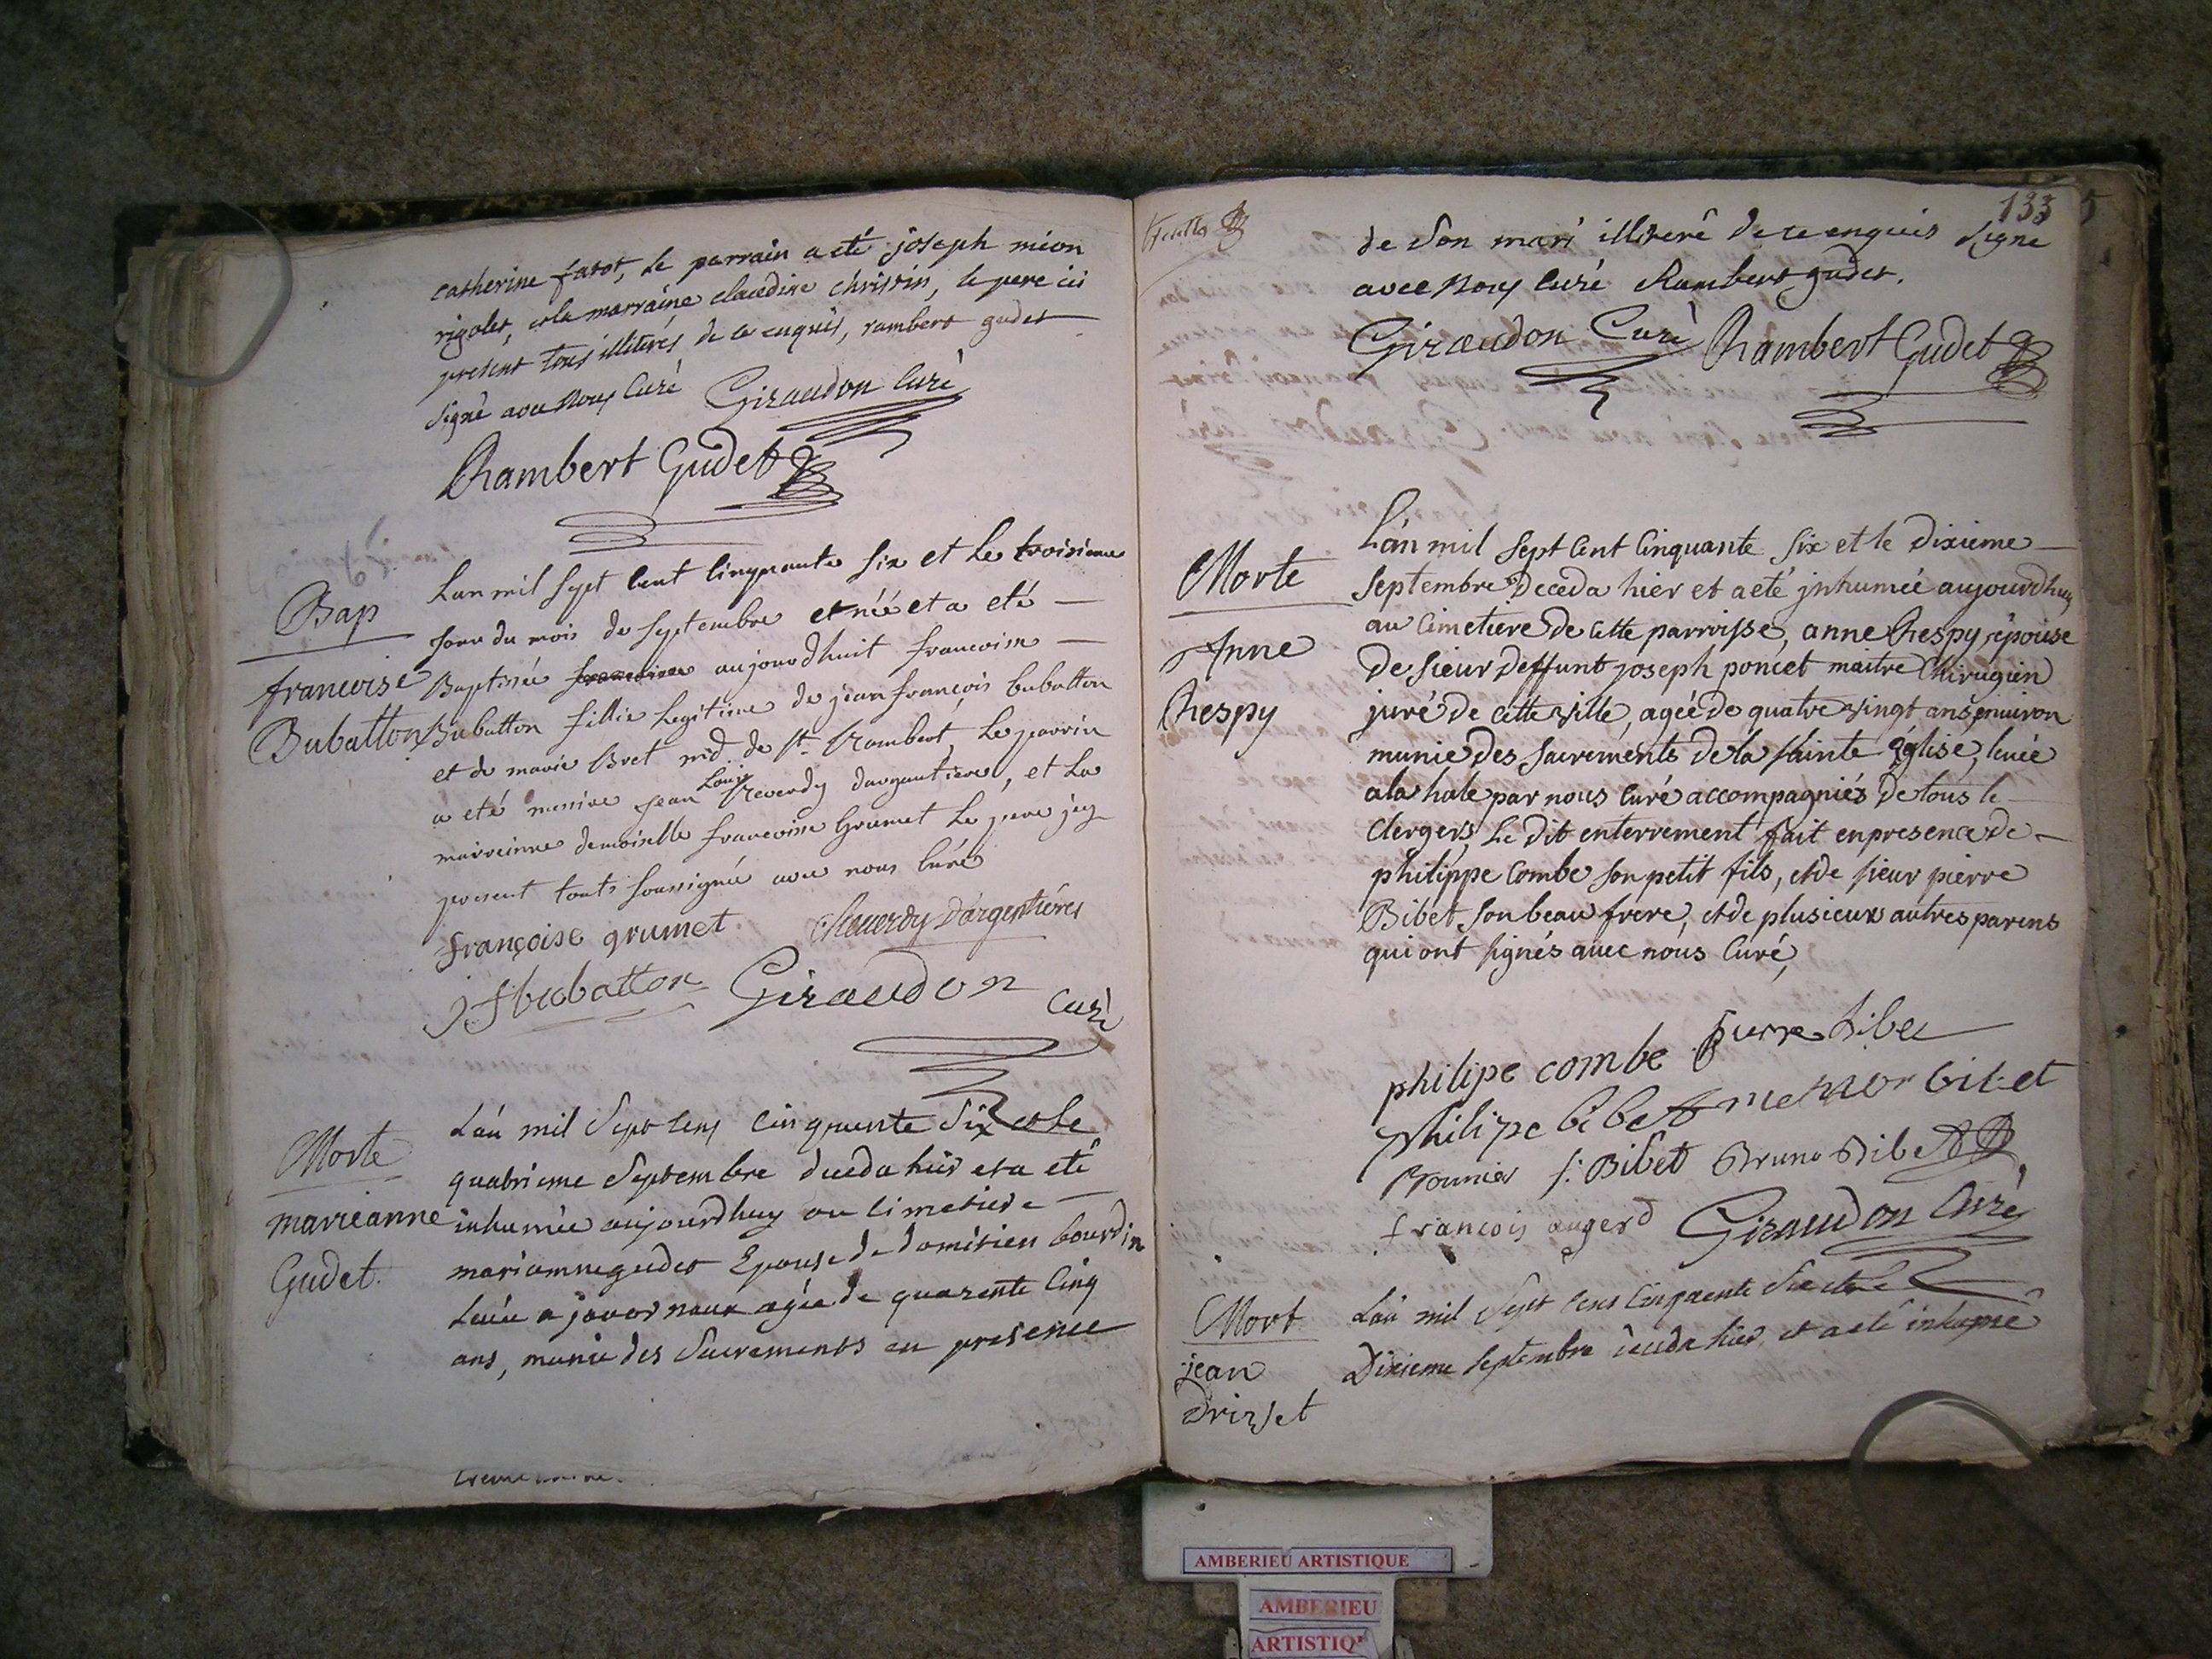 catherine favot, le parrain a eté joseph mion
rigolet, et la marraine claudine christin, le pere ici
present tous illiterés de ce enquis, rambert gudet
signé avec nous Curé Giraudon Curé
Rambert Gudet
Bap
francoise
Bubatton
Lan mil sept cent cinquante six et le troisieme
jour du mois de septembre est néé et a eté
Baptisée aujourdhuit francoise
Bubatton fillie legitime de jean françois bubatton
et de marie Bret md de st Rambert, le parrin
Louis
a eté messire jean Reverdy dargantiere, et la
marreinne demoiselle francoise Grumet Le pere jcy
present touts soussignés avec nous curé
françoise grumet Reverdy D'argentieres
J f bubatton Giraudon Curé
Morte
marieanne
Gudet.
Lan mil Sept cent cinquante Six et le
quatrieme Septembre deceda hier et a eté
inhumée aujourdhuy au cimetiere
marianne gudet Epouse de domitien bourdin
Levée a javornoux agée de quarente cinq
ans, munie des Sacrements en presence
133
de Son mari illiteré de ce enquis Signé
avec nous Curé Rambert gudet.
Giraudon Curé Rambert Gudet
Morte
Anne
Chespy
Lan mil sept cent cinquante six et le Dixieme
septembre Deceda hier et a eté jnhumée aujourdhuy
au Cimetiere de cette parroisse, anne Chespy, épouse
de sieur deffunt joseph poncet maitre Chirugien
juré de cette ville, agée de quatre vingt ans environ
munie des sacrements de la sainte église, levée
a la hale par nous curé accompagniés de tous le
Clergers, le dit enterrement fait en presence de
philippe Combe son petit fils, et de sieur pierre
Bibet son beau frere, et de plusieurs autres parens
qui ont signés avec nous Curé,
philipe combe pierre bibet
philipe bibet bibet
s: Bibet Bruno Bibet
francois augerd Giraudon Curé
Mort
jean
Drisset
Lan mil Sept cens Cinquente Six et le
Dixieme Septembre deceda hier et a eté inhumé
AMBERIEU ARTISTIQUE
AMBERIEU
ARTISTIQ